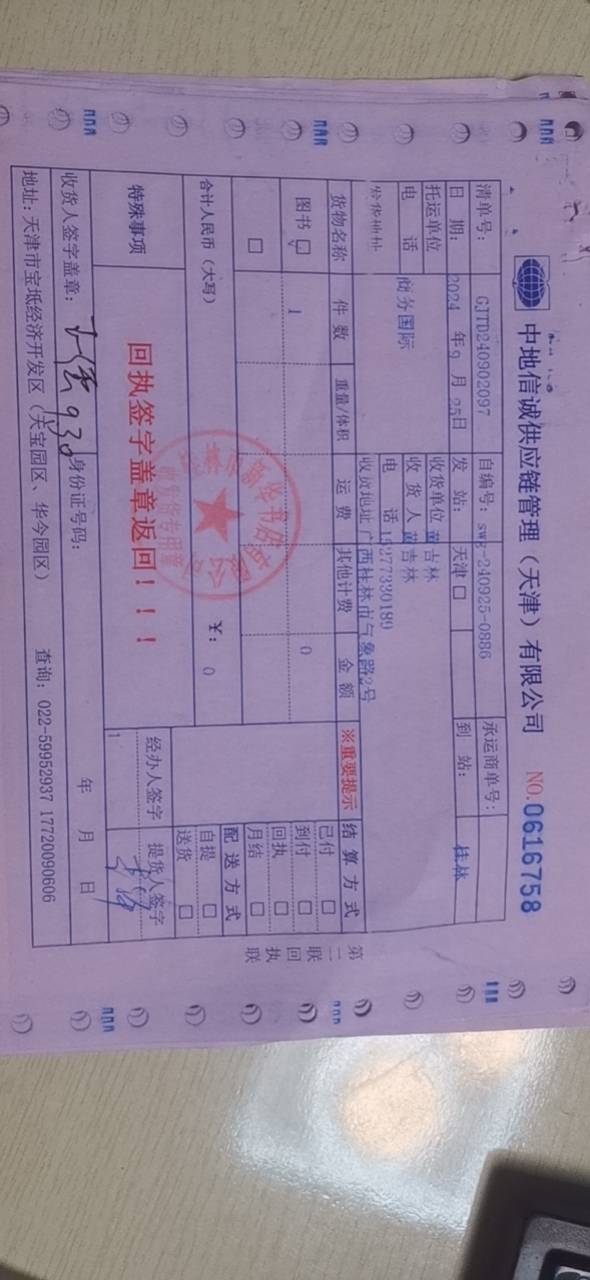 中地信诚供应链管理（天津）有限公司 NO.0616758
清单号： GJTD240902097 自编号： swg-240925-0886 承运商单号：
日 期： 2024 年 9 月 25日 发 站： 天津 □ 到 站： 桂林
托运单位 商务国际 收货单位 吉林
电 话 收 货 人 吉林
电 话 15277330189
发货地址 收货地址 广西桂林市气象路2号
货物名称 件 数 重量/体积 运 费 其他计费 金 额 ※重要提示 结 算 方 式
图书 □ 1 0 已付 □
到付 □
□ 回执 □
月结 □
合计人民币（大写） ￥： 0 配 送 方 式
自提 □
送货 □
特殊事项 回执签字盖章返回！！！ 经办人签字 提货人签字
1
收货人签字盖章： 930 身份证号码： 年 月 日
地址：天津市宝坻经济开发区（天宝园区、华今园区） 查询：022-59952937 17720090606
第二联 回执联